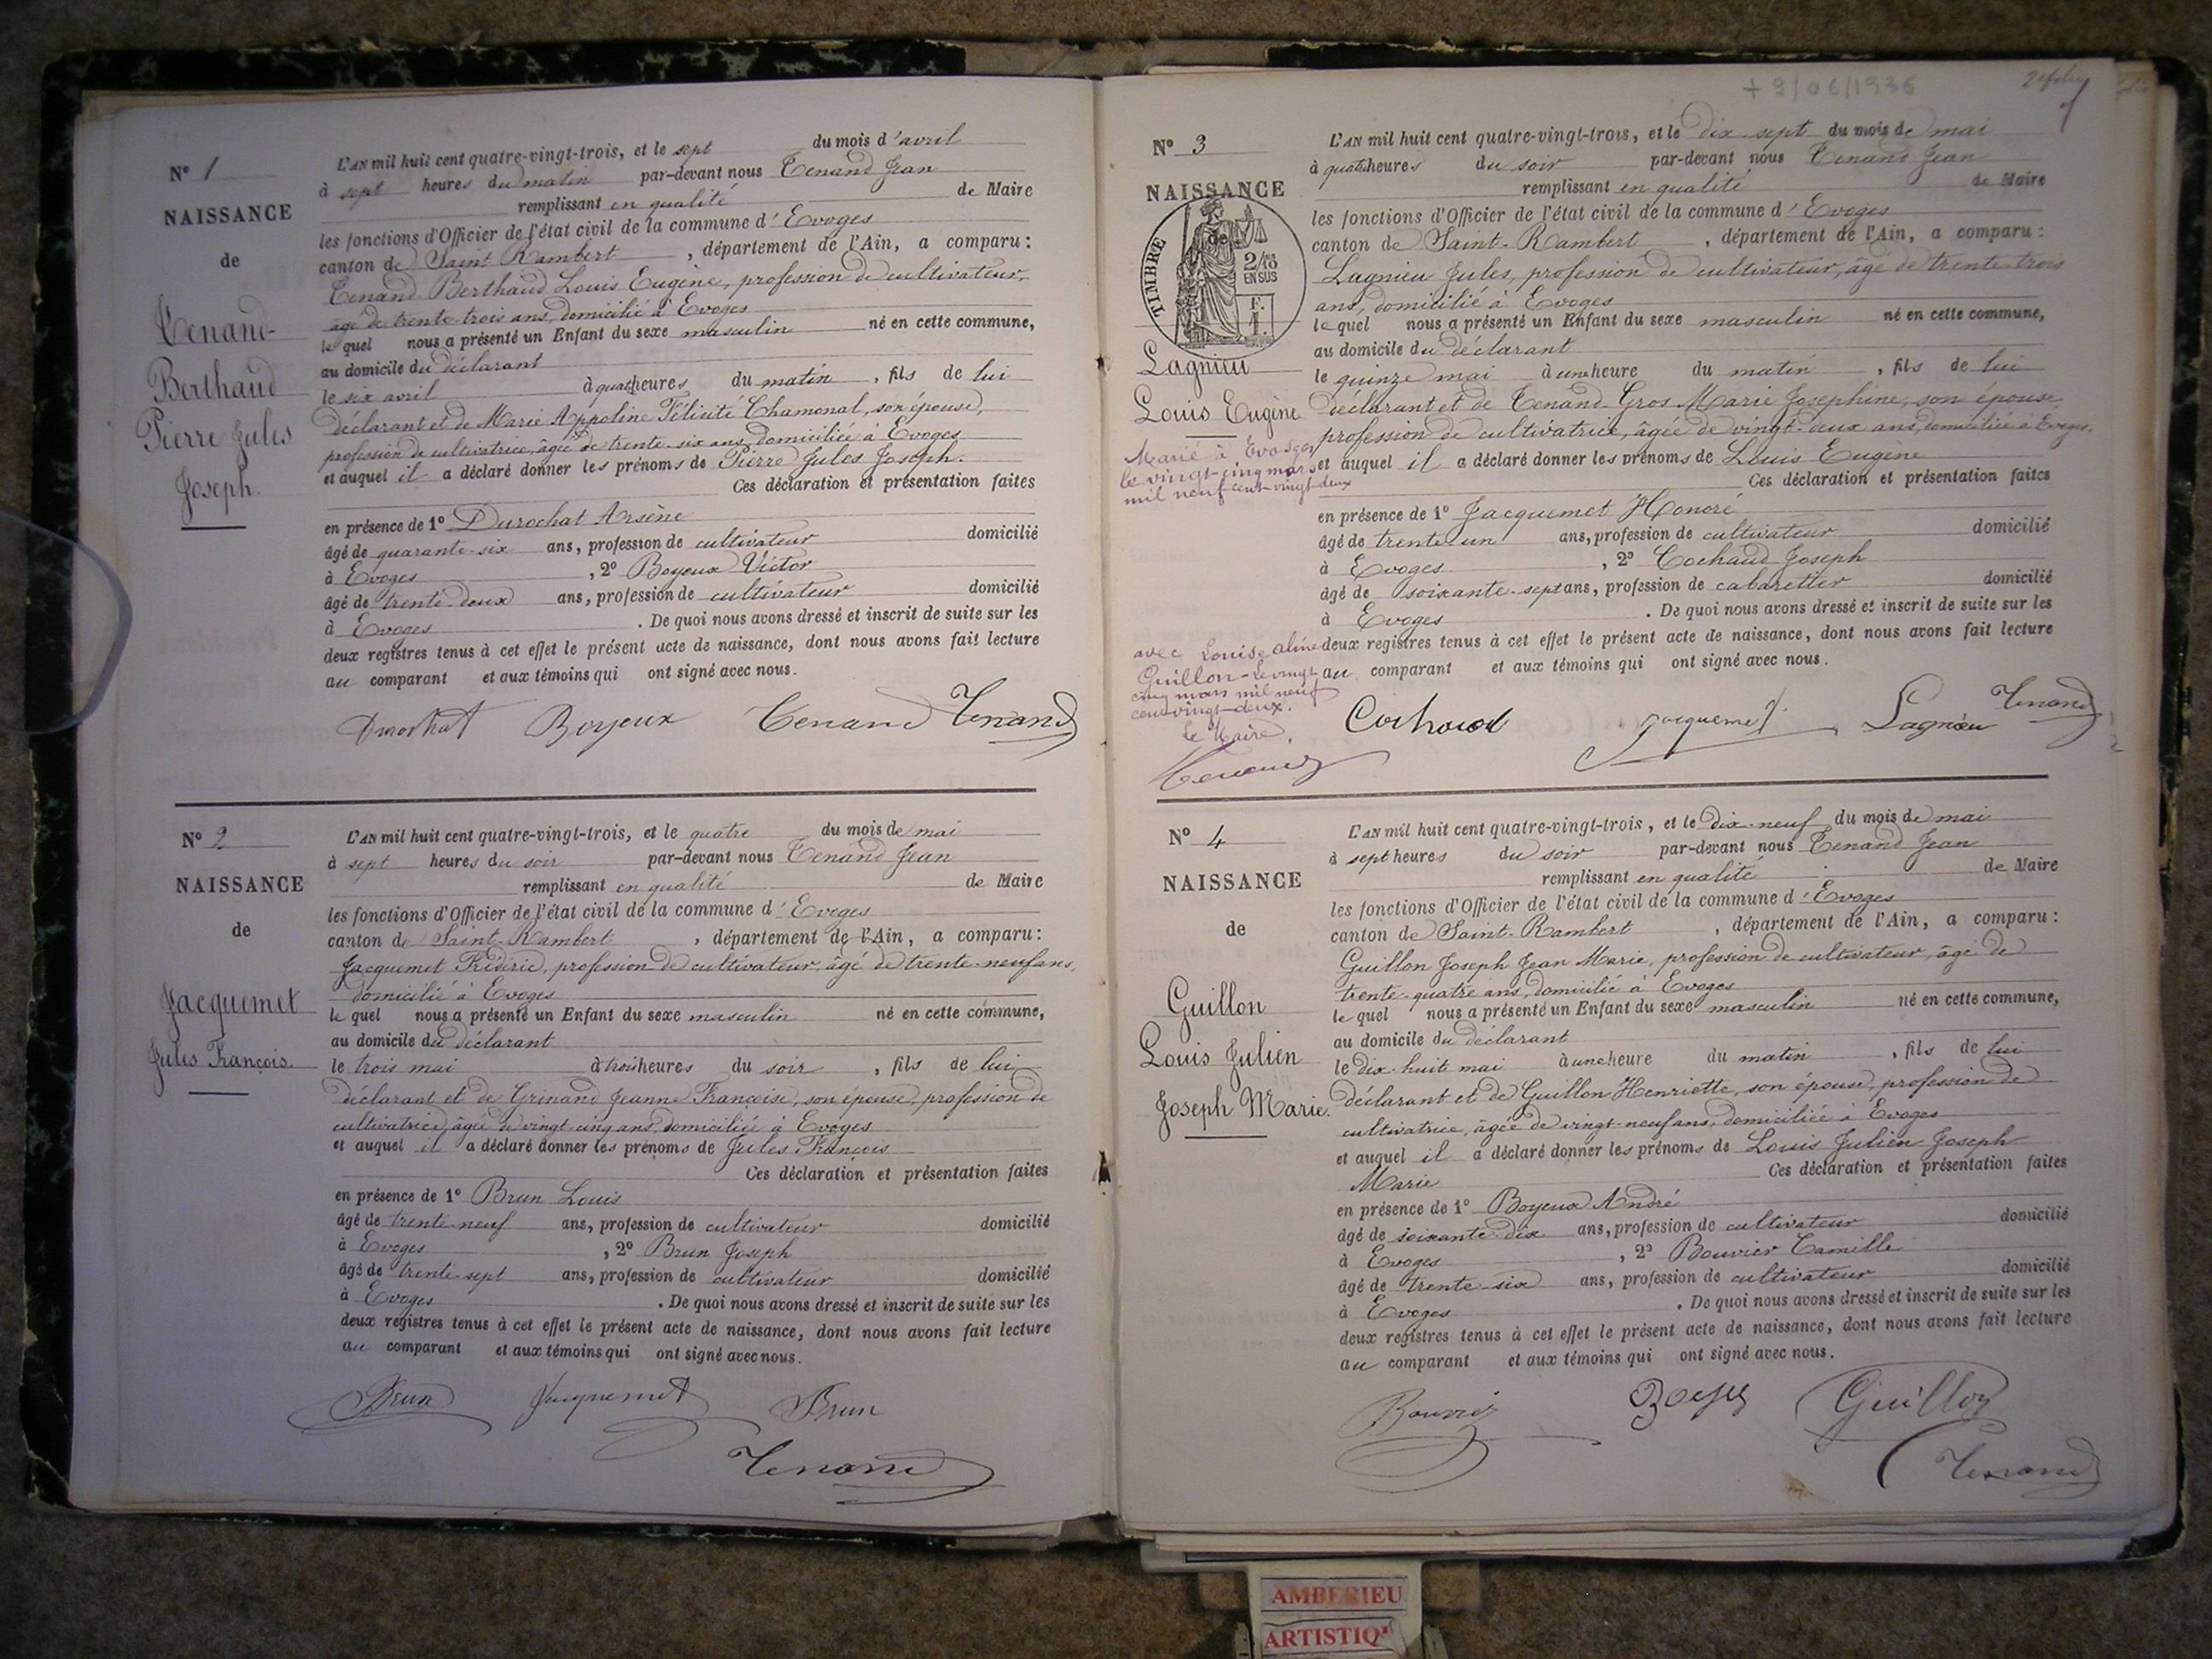 N° 1
NAISSANCE
de
Tenand-
Berthaud
Pierre Jules
Joseph.
L'AN mil huit cent quatre-vingt-trois, et le sept du mois d'avril
à sept heures du matin par-devant nous Tenand Jean
remplissant en qualité de Maire
les fonctions d'Officier de l'état civil de la commune d'Evoges
canton de Saint Rambert, département de l'Ain, a comparu:
Tenand-Berthaud Louis Eugène, profession de cultivateur,
âgé de trente-trois ans, domicilié à Evoges
le quel nous a présenté un Enfant du sexe masculin né en cette commune,
au domicile du déclarant
le six avril à quatre heures du matin, fils de lui
déclarant et de Marie Appoline Félicité Chamonal, son épouse,
profession de cultivatrice, âgée de trente-six ans, domiciliée à Evoges
et auquel il a déclaré donner les prénoms de Pierre Jules Joseph.
Ces déclaration et présentation faites
en présence de 1° Durochat Arsène
âgé de quarante-six ans, profession de cultivateur domicilié
à Evoges, 2° Boyeux Victor
âgé de trente-deux ans, profession de cultivateur domicilié
à Evoges. De quoi nous avons dressé et inscrit de suite sur les
deux registres tenus à cet effet le présent acte de naissance, dont nous avons fait lecture
au comparant et aux témoins qui ont signé avec nous.
Durochat Boyeux Tenand Tenand
N° 2
NAISSANCE
de
Jacquemet
Jules François.
L'AN mil huit cent quatre-vingt-trois, et le quatre du mois de mai
à sept heures du soir par-devant nous Tenand Jean
remplissant en qualité de Maire
les fonctions d'Officier de l'état civil de la commune d'Evoges
canton de Saint-Rambert, département de l'Ain, a comparu:
Jacquemet Frédéric, profession de cultivateur, âgé de trente-neuf ans,
domicilié à Evoges
le quel nous a présenté un Enfant du sexe masculin né en cette commune,
au domicile du déclarant
le trois mai à trois heures du soir, fils de lui
déclarant et de Grinand Jeanne Françoise, son épouse, profession de
cultivatrice, âgée de vingt-cinq ans, domiciliée à Evoges
et auquel il a déclaré donner les prénoms de Jules François
Ces déclaration et présentation faites
en présence de 1° Brun Louis
âgé de trente-neuf ans, profession de cultivateur domicilié
à Evoges, 2° Brun Joseph
âgé de trente-sept ans, profession de cultivateur domicilié
à Evoges. De quoi nous avons dressé et inscrit de suite sur les
deux registres tenus à cet effet le présent acte de naissance, dont nous avons fait lecture
au comparant et aux témoins qui ont signé avec nous.
Brun Jacquemet Brun
Tenand
+ 9/06/1936
N° 3
NAISSANCE
de
TIMBRE
2/10 EN SUS
F. 1.
Lagnieu
Louis Eugène
Marié à Evosges
le vingt-cinq mars
mil neuf cent vingt-deux
avec Louise Aline
Guillon - le vingt
cinq mars mil neuf
cent vingt-deux.
Le Maire,
Tenand
L'AN mil huit cent quatre-vingt-trois, et le dix-sept du mois de mai
à quatre heures du soir par-devant nous Tenand Jean
remplissant en qualité de Maire
les fonctions d'Officier de l'état civil de la commune d'Evoges
canton de Saint-Rambert, département de l'Ain, a comparu:
Lagnieu Jules, profession de cultivateur, âgé de trente-trois
ans, domicilié à Evoges
le quel nous a présenté un Enfant du sexe masculin né en cette commune,
au domicile du déclarant
le quinze mai à une heure du matin, fils de lui
déclarant et de Tenand-Gros Marie Josephine, son épouse
profession de cultivatrice, âgée de vingt-deux ans, domiciliée à Evoges.
et auquel il a déclaré donner les prénoms de Louis Eugène
Ces déclaration et présentation faites
en présence de 1° Jacquemet Honoré
âgé de trente-un ans, profession de cultivateur domicilié
à Evoges, 2° Cochaud Joseph
âgé de soixante-sept ans, profession de cabaretier domicilié
à Evoges. De quoi nous avons dressé et inscrit de suite sur les
deux registres tenus à cet effet le présent acte de naissance, dont nous avons fait lecture
au comparant et aux témoins qui ont signé avec nous.
Cochaud Jacquemet Lagnieu Tenand
N° 4
NAISSANCE
de
Guillon
Louis Julien
Joseph Marie.
L'AN mil huit cent quatre-vingt-trois, et le dix-neuf du mois de mai
à sept heures du soir par-devant nous Tenand Jean
remplissant en qualité de Maire
les fonctions d'Officier de l'état civil de la commune d'Evoges
canton de Saint-Rambert, département de l'Ain, a comparu:
Guillon Joseph Jean Marie, profession de cultivateur, âgé de
trente-quatre ans, domicilié à Evoges
le quel nous a présenté un Enfant du sexe masculin né en cette commune,
au domicile du déclarant
le dix-huit mai à une heure du matin, fils de lui
déclarant et de Guillon Henriette, son épouse, profession de
cultivatrice, âgée de vingt-neuf ans, domiciliée à Evoges
et auquel il a déclaré donner les prénoms de Louis Julien Joseph
Marie Ces déclaration et présentation faites
en présence de 1° Boyeux André
âgé de soixante-dix ans, profession de cultivateur domicilié
à Evoges, 2° Bouvier Camille
âgé de trente-six ans, profession de cultivateur domicilié
à Evoges. De quoi nous avons dressé et inscrit de suite sur les
deux registres tenus à cet effet le présent acte de naissance, dont nous avons fait lecture
au comparant et aux témoins qui ont signé avec nous.
Bouvier Guillon
Tenand
AMBERIEU
ARTISTIQ